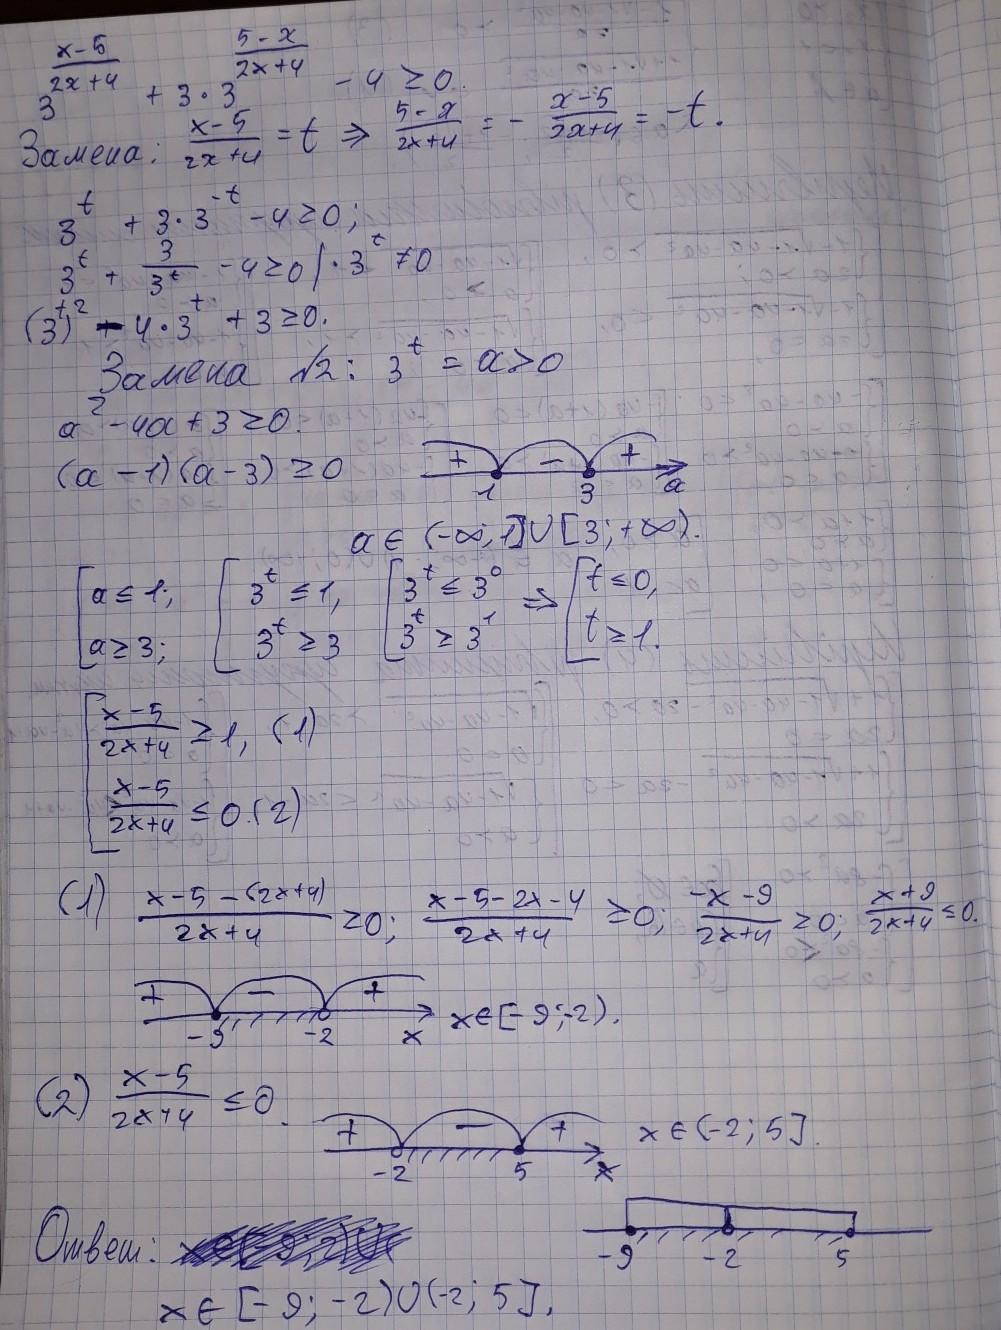 3^((x-5)/(2x+4)) + 3·3^((5-x)/(2x+4)) - 4 ≥ 0.
Замена: (x-5)/(2x+4) = t ⇒ (5-x)/(2x+4) = - (x-5)/(2x+4) = -t.
3^t + 3·3^(-t) - 4 ≥ 0;
3^t + 3/3^t - 4 ≥ 0 | ·3^t ≠ 0
(3^t)^2 - 4·3^t + 3 ≥ 0.
Замена №2: 3^t = a > 0
a^2 - 4a + 3 ≥ 0.
(a - 1)(a - 3) ≥ 0 + - + 1 3 a
a ∈ (-∞; 1] ∪ [3; +∞).
[ a ≤ 1; [ 3^t ≤ 1, [ 3^t ≤ 3^0 ⇒ [ t ≤ 0,
a ≥ 3; 3^t ≥ 3 3^t ≥ 3^1 t ≥ 1.
[ (x-5)/(2x+4) ≥ 1, (1)
(x-5)/(2x+4) ≤ 0. (2)
(1) (x-5-(2x+4))/(2x+4) ≥ 0; (x-5-2x-4)/(2x+4) ≥ 0; (-x-9)/(2x+4) ≥ 0; (x+9)/(2x+4) ≤ 0.
+ - + -9 -2 x x ∈ [-9; -2).
(2) (x-5)/(2x+4) ≤ 0.
+ - + -2 5 x x ∈ (-2; 5].
Ответ:
-9 -2 5
x ∈ [-9; -2) ∪ (-2; 5].